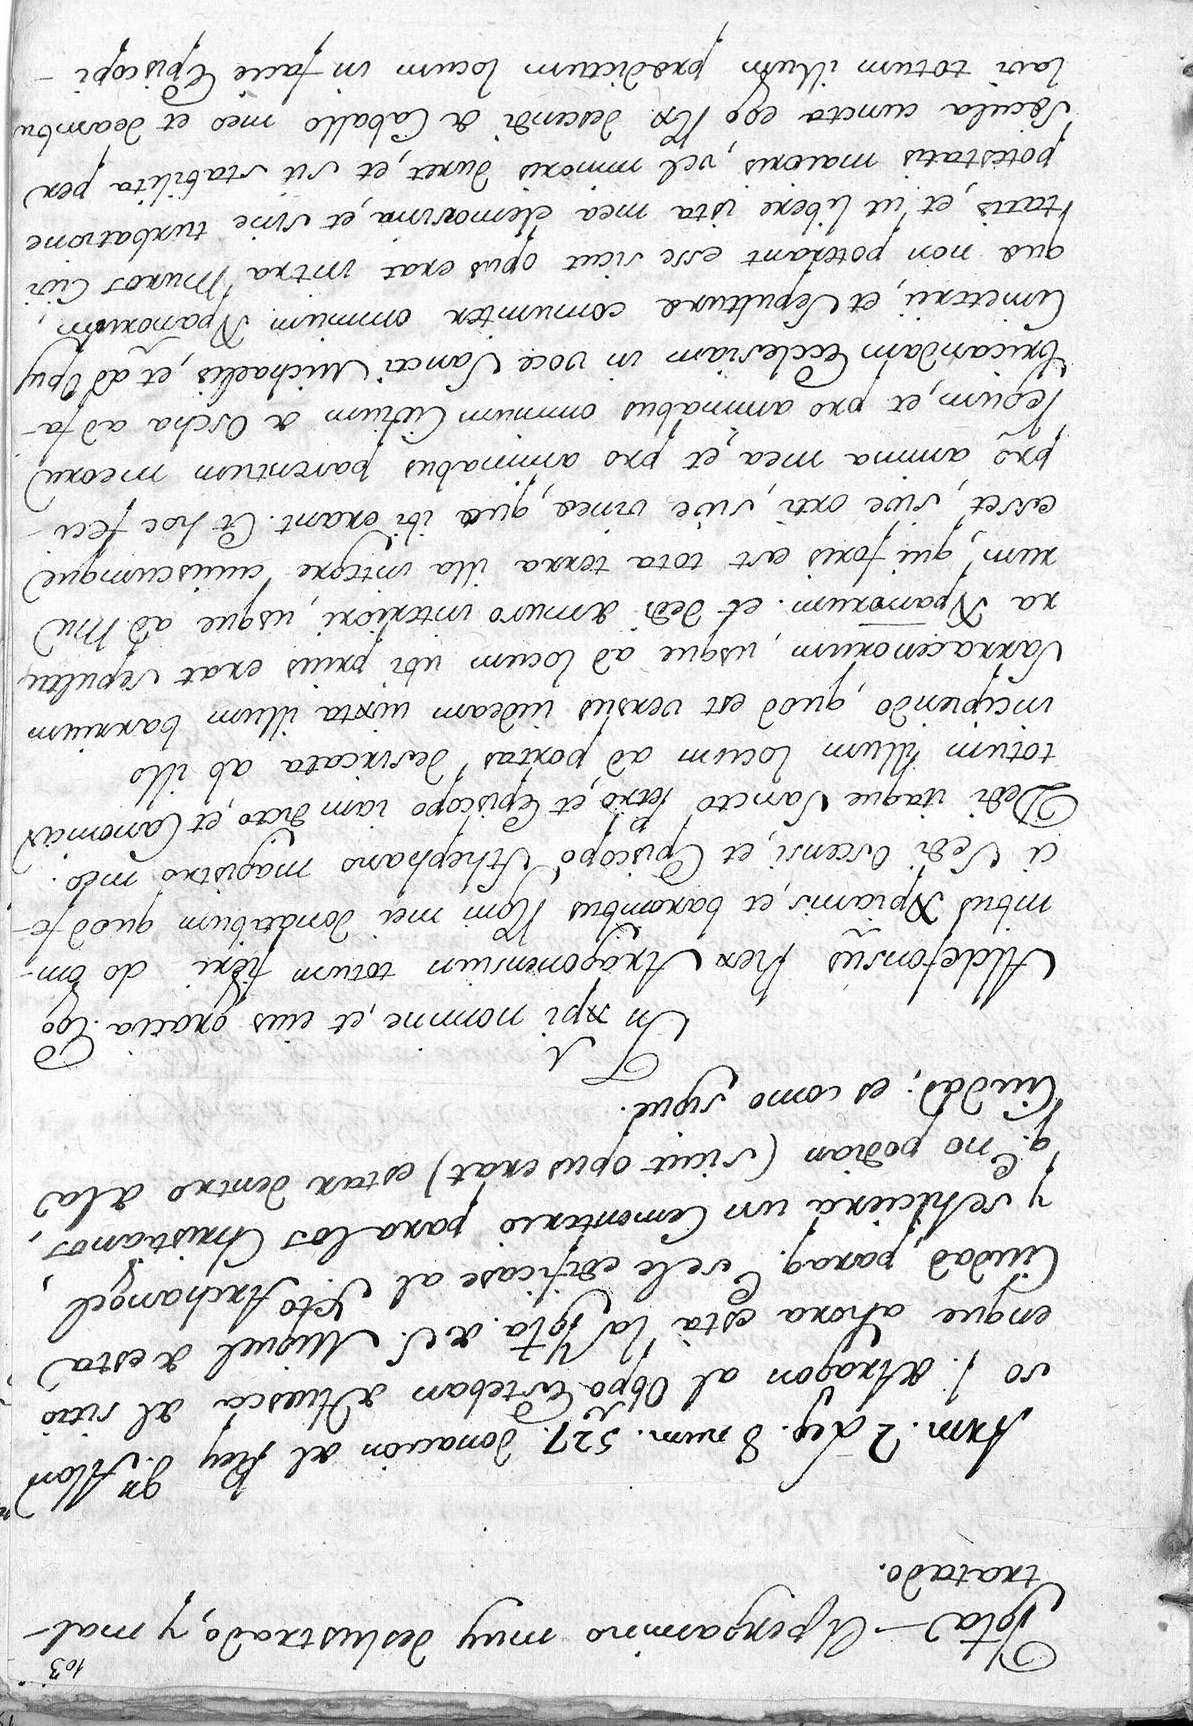 103
Nota - El pergamino muy deslustrado, y mal
tratado.
Arm. 2 Lig. 8 num. 527. Donacion del Rey Dn. Alon
so 1. de Aragon al Obpo Esteban de Huesca del sitio
enque ahora está la Igla. de S. Miguel de esta
Ciudad, paraq. se le edificase al Sto Archangel,
y se hiciera un Cementerio para los Christianos,
q.e no podian (sicut opus erat) estar dentro de la
Ciudad; es como sigue.
In xpi nomine, et eius gratia. Ego
Aldefonsus Rex Aragonensium totum fieri do om-
nibus Xpianis, et baronibus Rom mei donatibum quod fe-
ci Sedi Oscensi, et Episcopo Sthephano magistro meo.
Dedi itaque Sancto Petro, et Episcopo iam dicto, et Canonicis
totum illum locum ad portas desiricata ab illo
incipiendo, quod est versus iudeam iuxta illum barrium
Sarracenorum, usque ad locum ubi prius erat sepultu
ra Xpanorum. et dedi amuro interiori, usque ad Mu
rum, qui foris est tota terra illa integre cuiuscumque
esset, sive orti, sive vinea, que ibi erant. Et hoc feci
pro anima mea, et pro animabus parentum meoru
regum, et pro animabus omnium Civium de Oscha ad fa-
bricandam Ecclesiam in voce Sancti Michaelis, et ad Opus
Cimeterii, et Sepulture comuniter omnium Xpanorum,
que non poterant esse sicut opus erat intra Muros Civi
tatis, et ut libere ista mea elemosina, et sine turbatione
potestatis maioris, vel minoris duret, et sit stabilita per
secula cuncta ego Rx. descendi de Caballo meo et deambu
lavi totum illum predictum locum in facie Episcopi -